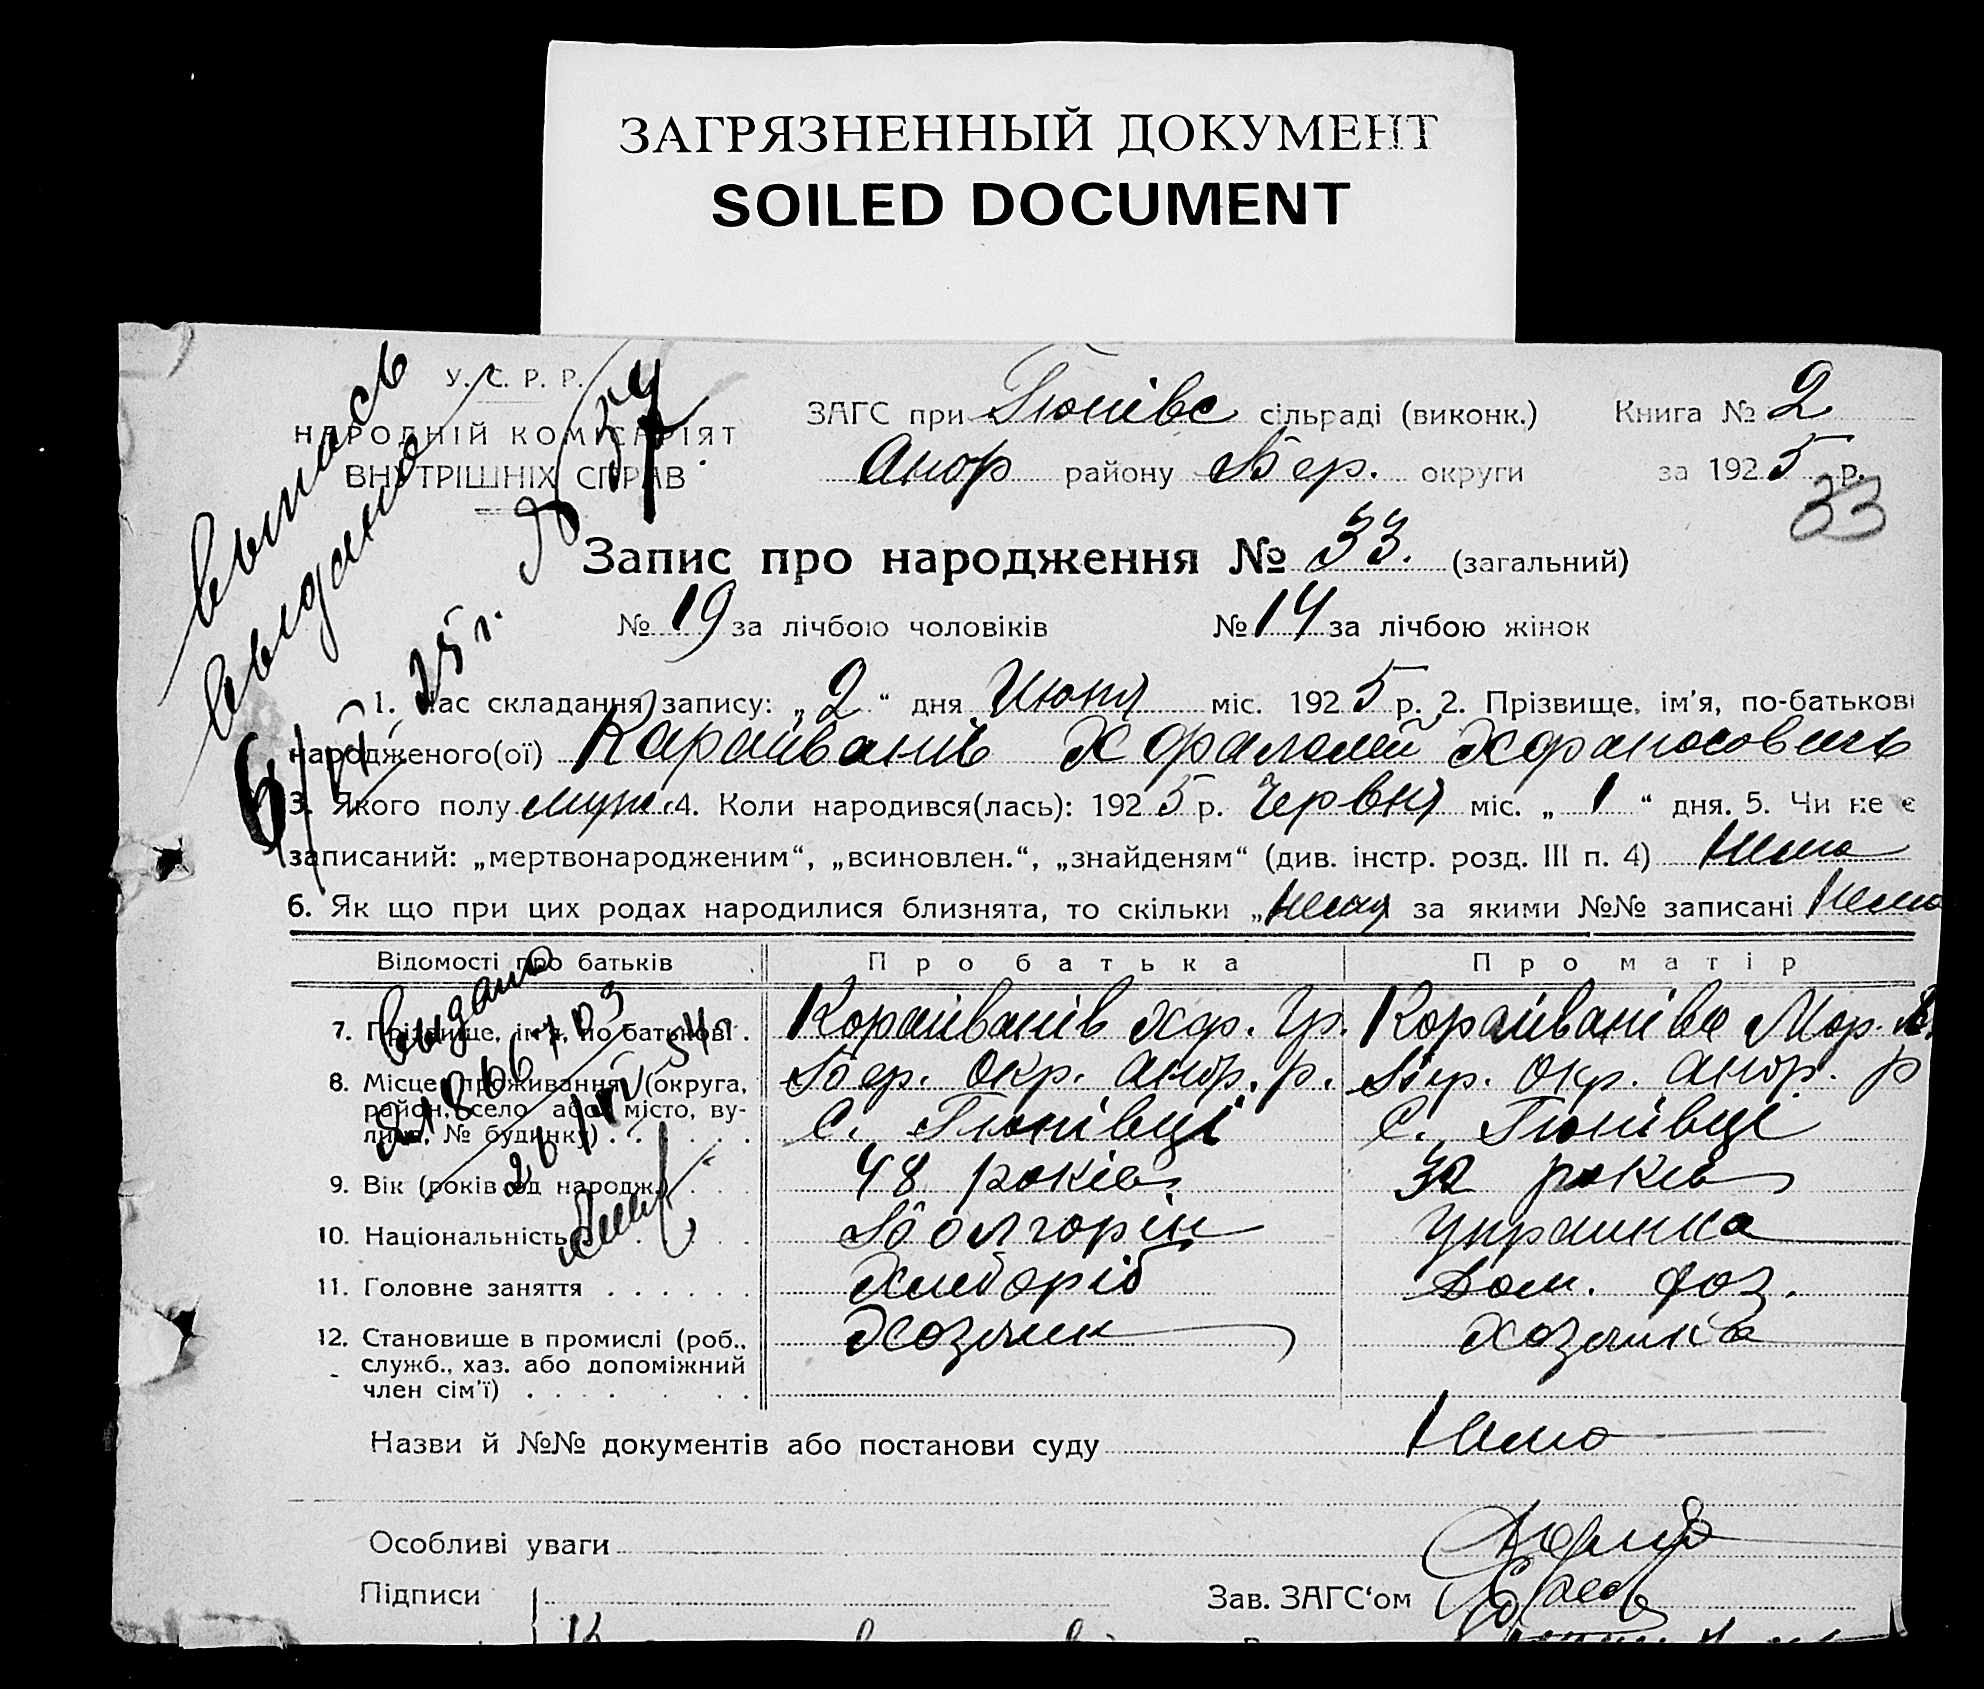 ЗАГРЯЗНЕННЫЙ ДОКУМЕНТ
SOILED DOCUMENT
У. С. Р. Р.
НАРОДНІЙ КОМІСАРІЯТ
ВНУТРІШНІХ СПРАВ
ЗАГС при Гюнівс сільраді (виконк.) Книга № 2
Анор району Бер. округи за 1925 р.
33
Выпись
выдана
Запис про народження № 33. (загальний)
№ 19 за лічбою чоловіків № 14 за лічбою жінок
1. Час складання запису: „2“ дня Июня міс. 1925 р. 2. Прізвище, ім'я, по-батькові
народженого(ої) Караіванів
3. Якого полу муж. 4. Коли народився(лась): 1925 р. Червня міс. „1“ дня. 5. Чи не є
записаний: „мертвонародженим“, „всиновлен.“, „знайденям“ (див. інстр. розд. III п. 4) Нема
6. Як що при цих родах народилися близнята, то скільки „Нема за якими №№ записані Нема
Відомості про батьків Про батька Про матір
Видано
7. Прізвище, ім'я, по батькові . Кораіванів Хар. Гр. Кораіванівa Мар.
8. Місце проживання (округа, Бер. окр. Анор. р. Бер. Окр. Анор. р
район, село або місто, ву-
лиця, № будинку) . . . . . С. Гюнівці С. Гюнівці
9. Вік (років од народж.) . . . 48 років 32 років
10. Національність . . . . . Болгорін Украинка
11. Головне заняття . . . . . . Хлеборіб Дом. хоз.
12. Становище в промислі (роб., Хозяин Хозяйка
служб., хаз. або допоміжний
член сім'ї) . . . . . . .
Назви й №№ документів або постанови суду Нема
Особливі уваги
Підписи Зав. ЗАГС'ом